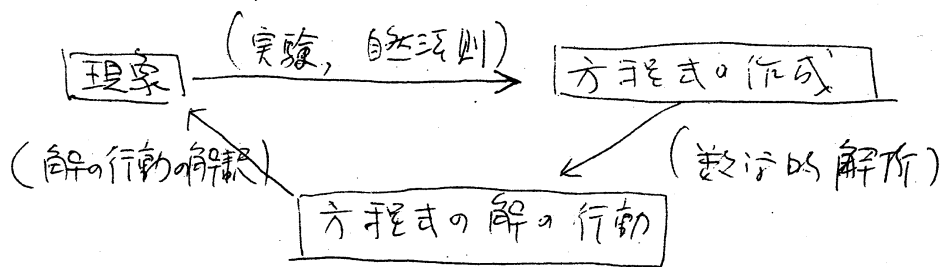 (実験, 自然法則)
現象
方程式の作成
(解の行動の解釈)
(数学的解析)
方程式の解の行動